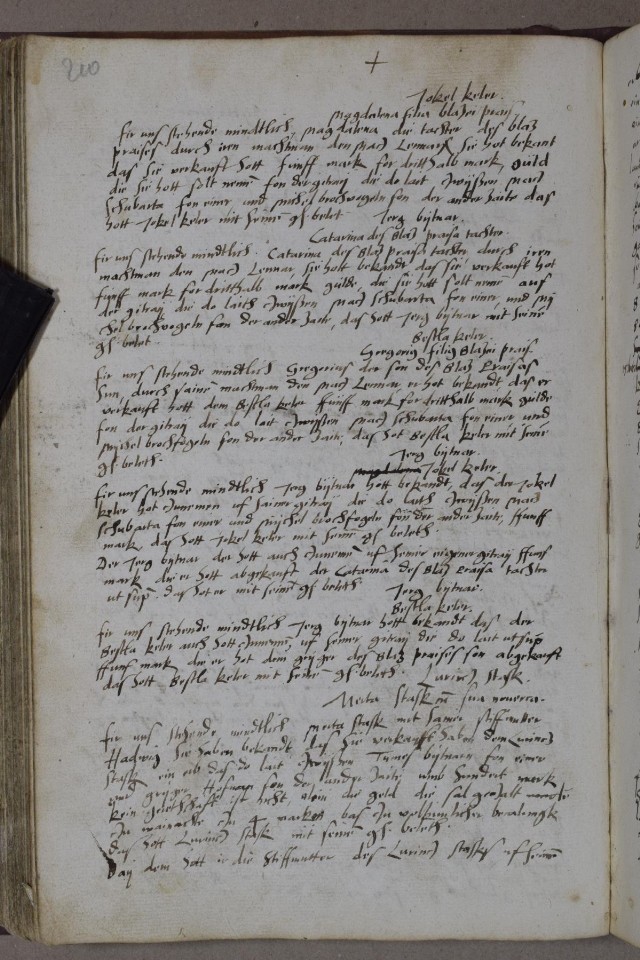 210
+
Jokel keler.
Magdalena filia blasii prais
Fir uns stehende mindtlich, Magdalena die tachter des blas
praises durch iren machtman den Mats Lennar sie hot bekant
das sie verkauft hott funff mark for dritthalb mark, guld
die sie hott solt nemen fon der gitraj die do lait zwissen Mats
Schubarta fon einer und Michel brochvogeln fon der ander saite das
hott Jokel keler mit seinem gs belet
Jerg bytnar.
Catarina des Blas praisa tachter.
Fir uns stehende mindtlich. Catarina des Blas praisa tachter durch iren
machtman den Mats Lennar, sie hott bekandt das sie verkauft hot
funff mark for dritthalb mark gulde, die sie hott solt neme auf
der gitraj die do laith zwissen Mats Schubarta fon einer und Mi
chel brochvogeln fon der ander saite, das hott Jerg bytnar mit seine
gs belet.
Bestla keler.
Gregorius filius Blasii prais.
Fir uns stehende mindtlich Gregorius der son des Blas Praisas
Son, durch sainen machtman den Mats Lennar er hot bekandt das er
verkauft hott dem Bestla keler funff mark for dritthalb mark gulde
fon der gitraj die do lait zwissen Mats Schubarta fon einer und
Michel brochfogeln fon der ander saite, das hot Bestla keler mit seine
gs beleth.
Jerg bytnar.
Jokel keler.
Fir uns stehende mindtlich Jerg bytnar hott bekandt, das der Jokel
keler hot zunemen uf sainer gitraj die do laith zwissen Mats
Schubarta fon einer und Michel brochfogeln fon der ander saite, funff
mark, das hott Jokel keler mit seine gs beleth.
Der Jerg bytnar der hott auch zunemen uf seiner eigener gitraj funf
mark die er hott abgekauft der Catarina des Blas Praisa tachter
ut supra. das hot er mit seinem gs beleth
Jerg bytnar.
Bestla keler.
Fir uns stehende mindtlich Jerg bytnar hott bekandt das der
Bestla keler auch hott zunemen, uf seiner gitraj die do lait ut supra
funf mark die er hot dem greger des Blas praises son abgekauft
das hott Bestla keler mit seinem gs beleth.
Larincz Stask.
Merta Stask cum sua noverca.
Fir uns stehende mindtlich Merta Stask mit samer stiffmutter
Hadwig sie haben bekandt das sie verkauft haben dem Larincz
Stask ein erb das do lait zwissen Tunies bytnarn fon einer
und greger Hofman fon der ander saite umb hundert mark
kein geretschaft ist nicht alein die geld die sal gezalt werde
zu 4 marken bas zu volkumlicher bezalungk
das hott Larincz Stask mit seinem gs beleth.
Daj dem hott ir die stiffmutter des Larincz Stasks